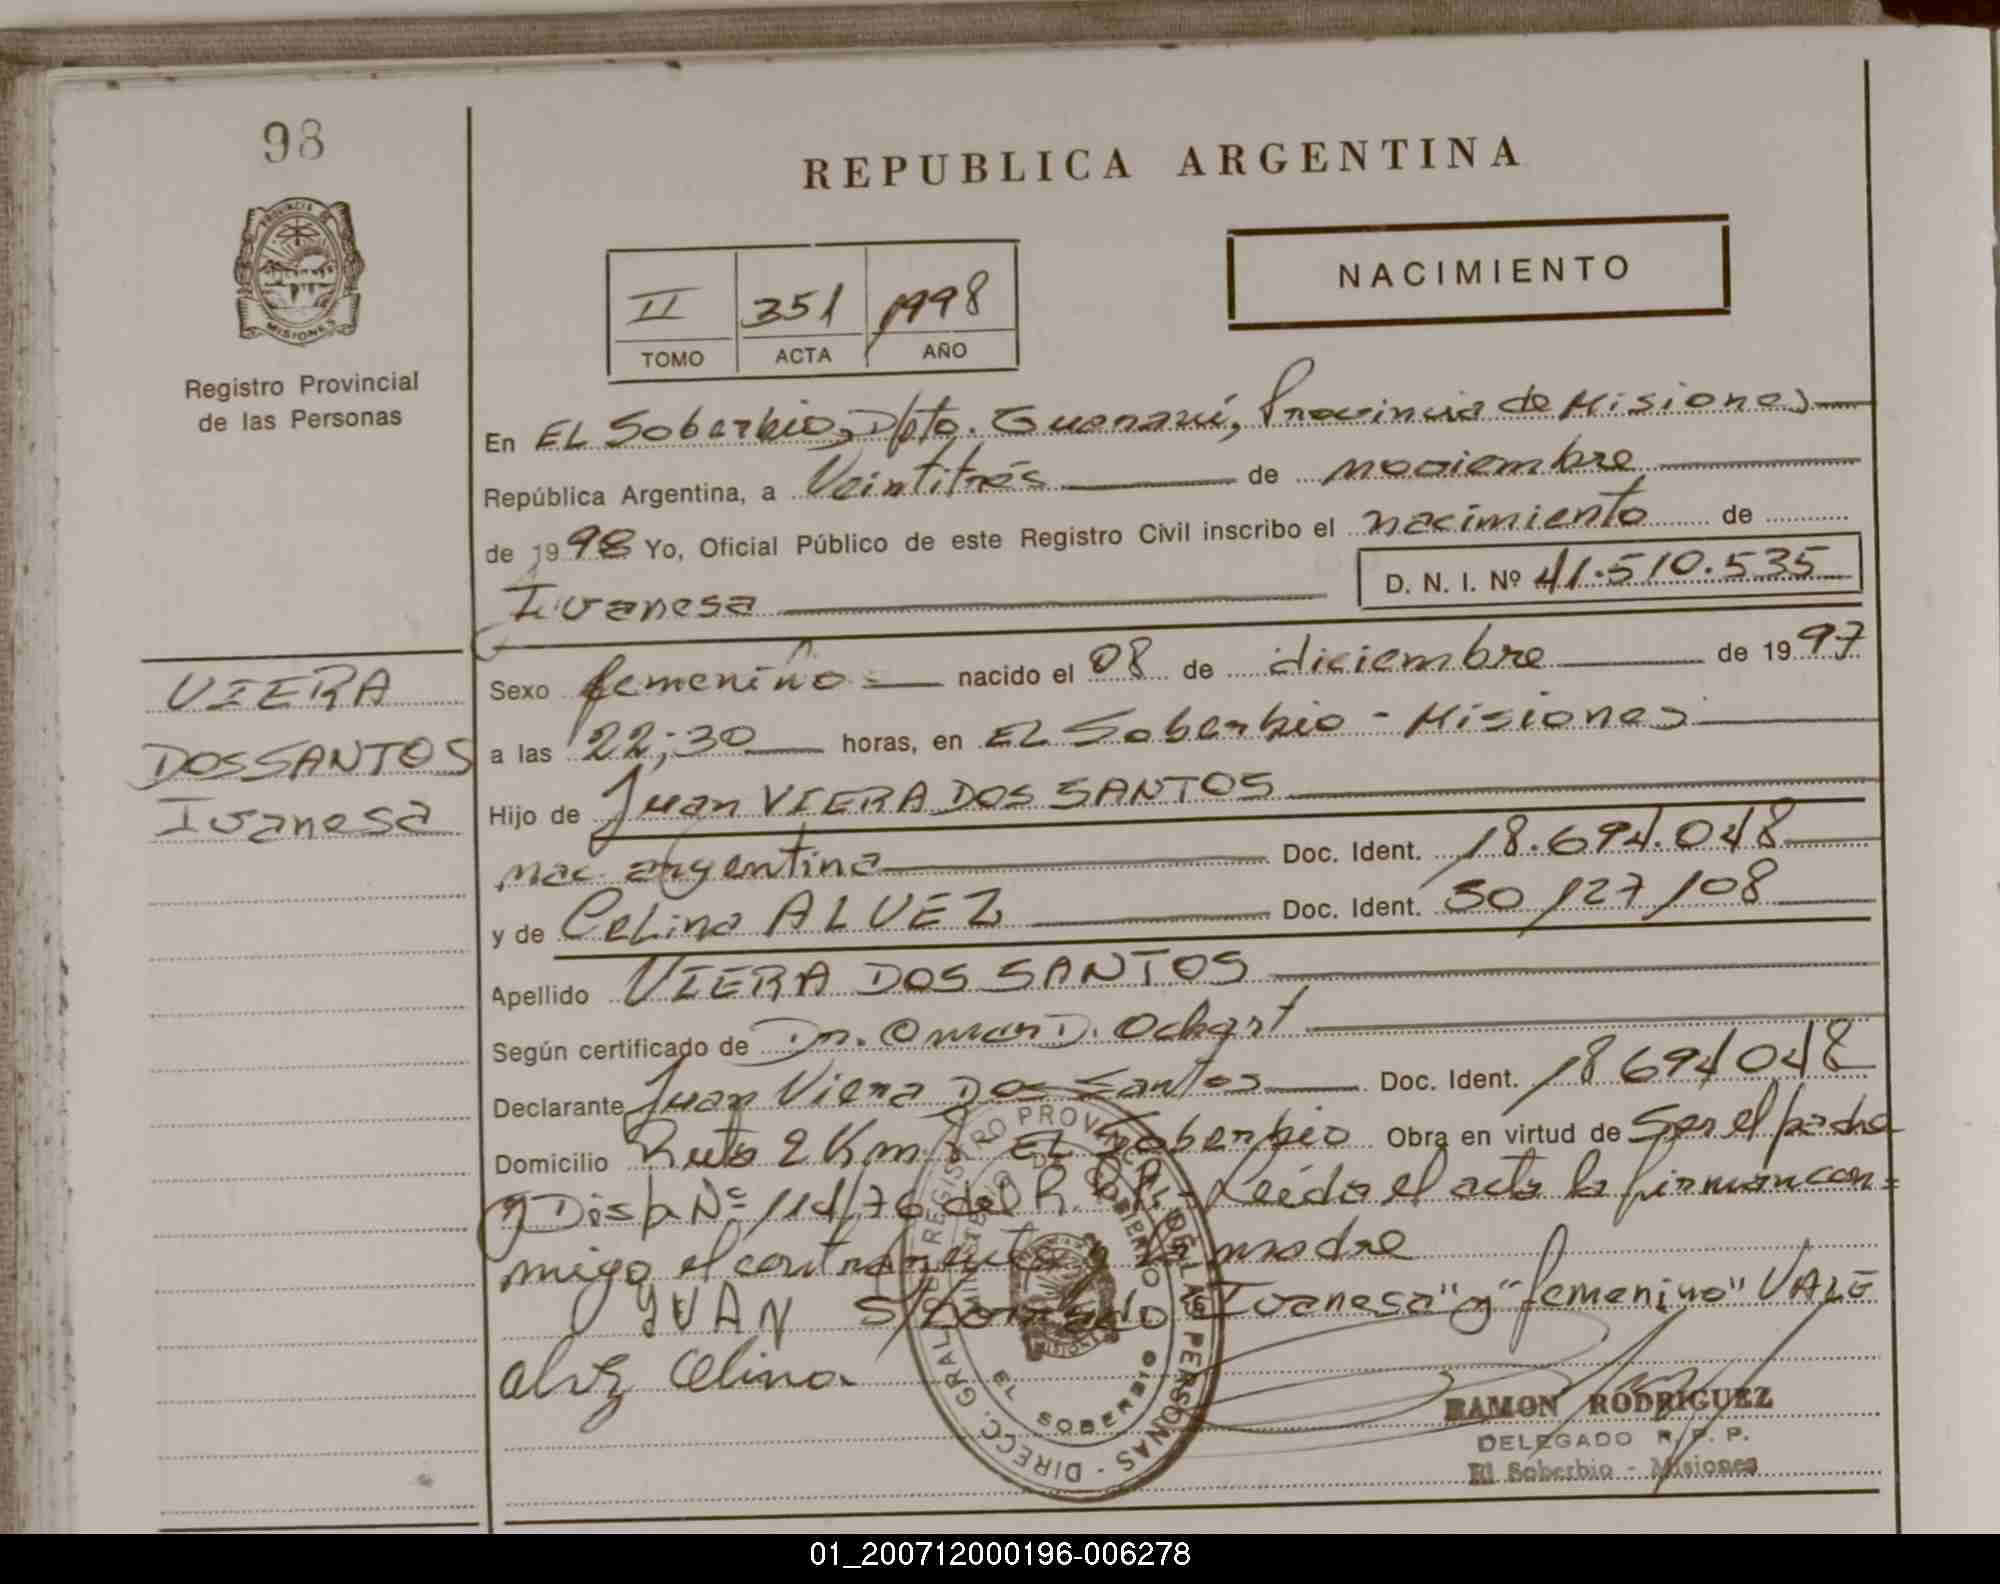 98
PROVINCIA DE
MISIONES
Registro Provincial
de las Personas
VIERA
DOS SANTOS
Ivanesa
REPUBLICA ARGENTINA
NACIMIENTO
II 351 1998
TOMO ACTA AÑO
En EL Soberbio, Dpto. Guaraní, Provincia de Misiones
República Argentina, a Veintitrés de noviembre
de 1998 Yo, Oficial Público de este Registro Civil inscribo el nacimiento de
Ivanesa D. N. I. Nº 41.510.535
Sexo femenino nacido el 08 de diciembre de 1997
a las 22;30 horas, en EL Soberbio - Misiones
Hijo de Juan VIERA DOS SANTOS
nac. argentina Doc. Ident. 18.694.048
y de Celina ALVEZ Doc. Ident. 50/127/108
Apellido VIERA DOS SANTOS
Según certificado de Dr. Omar D. Ochart
Declarante Juan Viera Dos Santos Doc. Ident. 18694048
Domicilio Ruta 2 Km EL Soberbio Obra en virtud de Ser el padre
y Disp. Nº 114/76 del R.P.P. - Leída el acta la firman con=
migo el contrayente y la madre
JUAN S/borrado "Ivanesa" y "femenino" VALE
alvez Celina
REGISTRO PROVINCIAL DE LAS PERSONAS - DIRECC. GRAL.
MINISTERIO DE GOBIERNO
MISIONES
EL SOBERBIO
RAMON RODRIGUEZ
DELEGADO R. P. P.
El Soberbio - Misiones
01_200712000196-006278